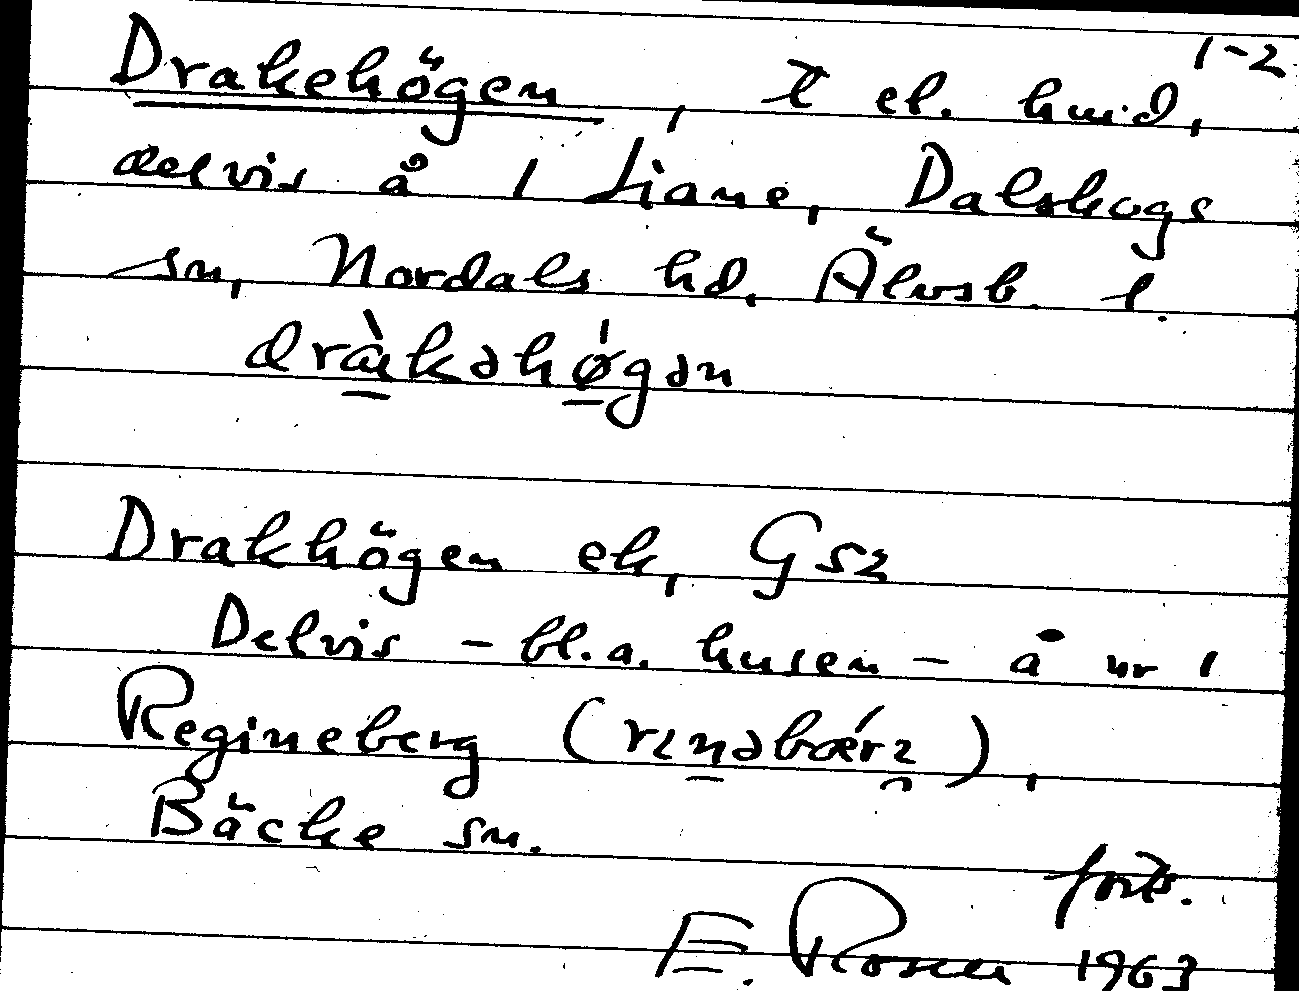 1-2
Drakehögen, t el. hmd,
delvis å 1 Liane, Dalskogs
sn, Nordals hd. Älvsb. l.
dràkəhǿgən
Drakhögen ek, G 52
Delvis - bl.a. husen - å nr 1
Regineberg (rɩnəbǽrɂ),
Bäcke sn.
forts.
E. Rosell 1963